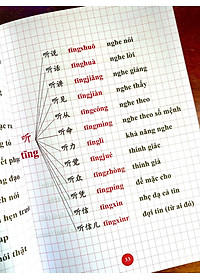 听说 tīngshuō nghe nói
听话 tīnghuà nghe lời
听讲 tīngjiǎng nghe giảng
听见 tīngjiàn nghe thấy
听从 tīngcóng nghe theo
听 tīng
听命 tīngmìng nghe theo số mệnh
听力 tīnglì khả năng nghe
听觉 tīngjué thính giác
听众 tīngzhòng thính giả
听凭 tīngpíng để mặc cho
听信 tīngxìn nhẹ dạ cả tin
听信儿 tīngxìnr đợi tin (từ ai đó)
33